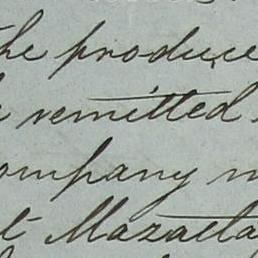 the produce
remitted
ompany
Mazatla